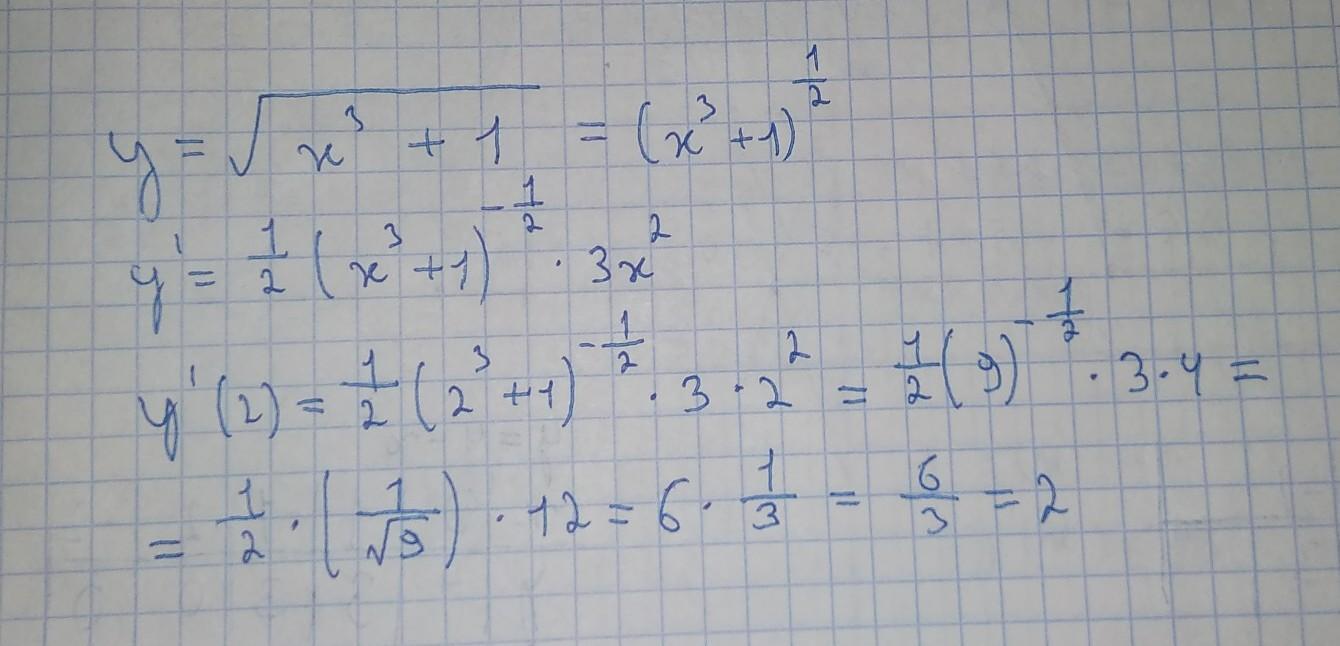 y = √(x³ + 1) = (x³ + 1)^(1/2)
y' = 1/2 (x³ + 1)^(-1/2) · 3x²
y'(2) = 1/2 (2³ + 1)^(-1/2) · 3 · 2² = 1/2 (9)^(-1/2) · 3 · 4 =
= 1/2 · (1/√9) · 12 = 6 · 1/3 = 6/3 = 2